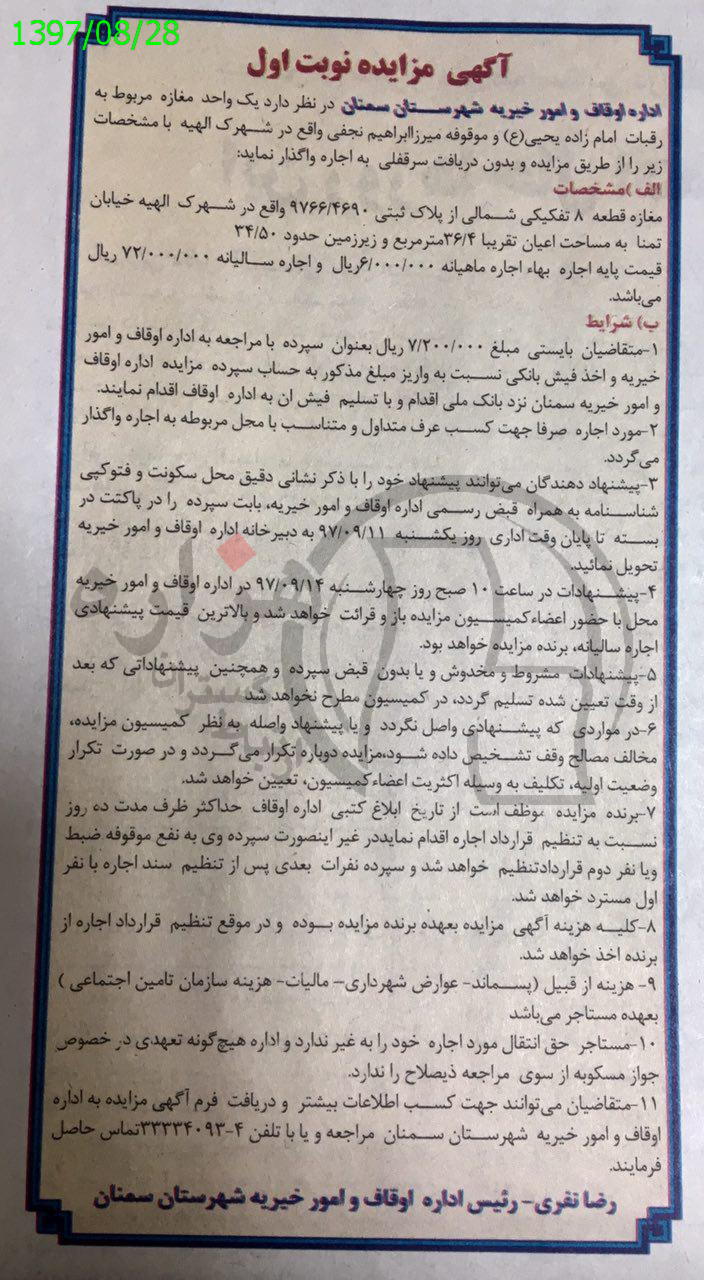 1397/08/28
آگهی مزایده نوبت اول
اداره اوقاف و امور خیریه شهرستان سمنان در نظر دارد یک واحد مغازه مربوط به
رقبات امام زاده یحیی(ع) و موقوفه میرزاابراهیم نجفی واقع در شهرک الهیه با مشخصات
زیر را از طریق مزایده و بدون دریافت سرقفلی به اجاره واگذار نماید:
الف)مشخصات
مغازه قطعه ۸ تفکیکی شمالی از پلاک ثبتی ۹۷۶۶/۴۶۹۰ واقع در شهرک الهیه خیابان
تمنا به مساحت اعیان تقریبا ۳۶/۴مترمربع و زیرزمین حدود ۳۴/۵۰
قیمت پایه اجاره بهاء اجاره ماهیانه ۶/۰۰۰/۰۰۰ریال و اجاره سالیانه ۷۲/۰۰۰/۰۰۰ ریال
می‌باشد.
ب) شرایط
۱-متقاضیان بایستی مبلغ ۷/۲۰۰/۰۰۰ ریال بعنوان سپرده با مراجعه به اداره اوقاف و امور
خیریه و اخذ فیش بانکی نسبت به واریز مبلغ مذکور به حساب سپرده مزایده اداره اوقاف
و امور خیریه سمنان نزد بانک ملی اقدام و با تسلیم فیش ان به اداره اوقاف اقدام نمایند.
۲-مورد اجاره صرفا جهت کسب عرف متداول و متناسب با محل مربوطه به اجاره واگذار
می‌گردد.
۳-پیشنهاد دهندگان می‌توانند پیشنهاد خود را با ذکر نشانی دقیق محل سکونت و فتوکپی
شناسنامه به همراه قبض رسمی اداره اوقاف و امور خیریه، بابت سپرده را در پاکتت در
بسته تا پایان وقت اداری روز یکشنبه ۹۷/۰۹/۱۱ به دبیرخانه اداره اوقاف و امور خیریه
تحویل نمائید.
۴-پیشنهادات در ساعت ۱۰ صبح روز چهارشنبه ۹۷/۰۹/۱۴ در اداره اوقاف و امور خیریه
محل با حضور اعضاءکمیسیون مزایده باز و قرائت خواهد شد و بالاترین قیمت پیشنهادی
اجاره سالیانه، برنده مزایده خواهد بود.
۵-پیشنهادات مشروط و مخدوش و یا بدون قبض سپرده و همچنین پیشنهاداتی که بعد
از وقت تعیین شده تسلیم گردد، در کمیسیون مطرح نخواهد شد
۶-در مواردی که پیشنهادی واصل نگردد و یا پیشنهاد واصله به نظر کمیسیون مزایده،
مخالف مصالح وقف تشخیص داده شود،مزایده دوباره تکرار می‌گردد و در صورت تکرار
وضعیت اولیه، تکلیف به وسیله اکثریت اعضاءکمیسیون، تعیین خواهد شد.
۷-برنده مزایده موظف است از تاریخ ابلاغ کتبی اداره اوقاف حداکثر ظرف مدت ده روز
نسبت به تنظیم قرارداد اجاره اقدام نمایددر غیر اینصورت سپرده وی به نفع موقوفه ضبط
ویا نفر دوم قراردادتنظیم خواهد شد و سپرده نفرات بعدی پس از تنظیم سند اجاره با نفر
اول مسترد خواهد شد.
۸-کلیه هزینه آگهی مزایده بعهده برنده مزایده بوده و در موقع تنظیم قرارداد اجاره از
برنده اخذ خواهد شد.
۹- هزینه از قبیل (پسماند- عوارض شهرداری- مالیات- هزینه سازمان تامین اجتماعی )
بعهده مستاجر می‌باشد
۱۰-مستاجر حق انتقال مورد اجاره خود را به غیر ندارد و اداره هیچ‌گونه تعهدی در خصوص
جواز مسکوبه از سوی مراجعه ذیصلاح را ندارد.
۱۱-متقاضیان می‌توانند جهت کسب اطلاعات بیشتر و دریافت فرم آگهی مزایده به اداره
اوقاف و امور خیریه شهرستان سمنان مراجعه و یا با تلفن ۴-۳۳۳۳۴۰۹۳تماس حاصل
فرمایند.
رضا نفری- رئیس اداره اوقاف و امور خیریه شهرستان سمنان